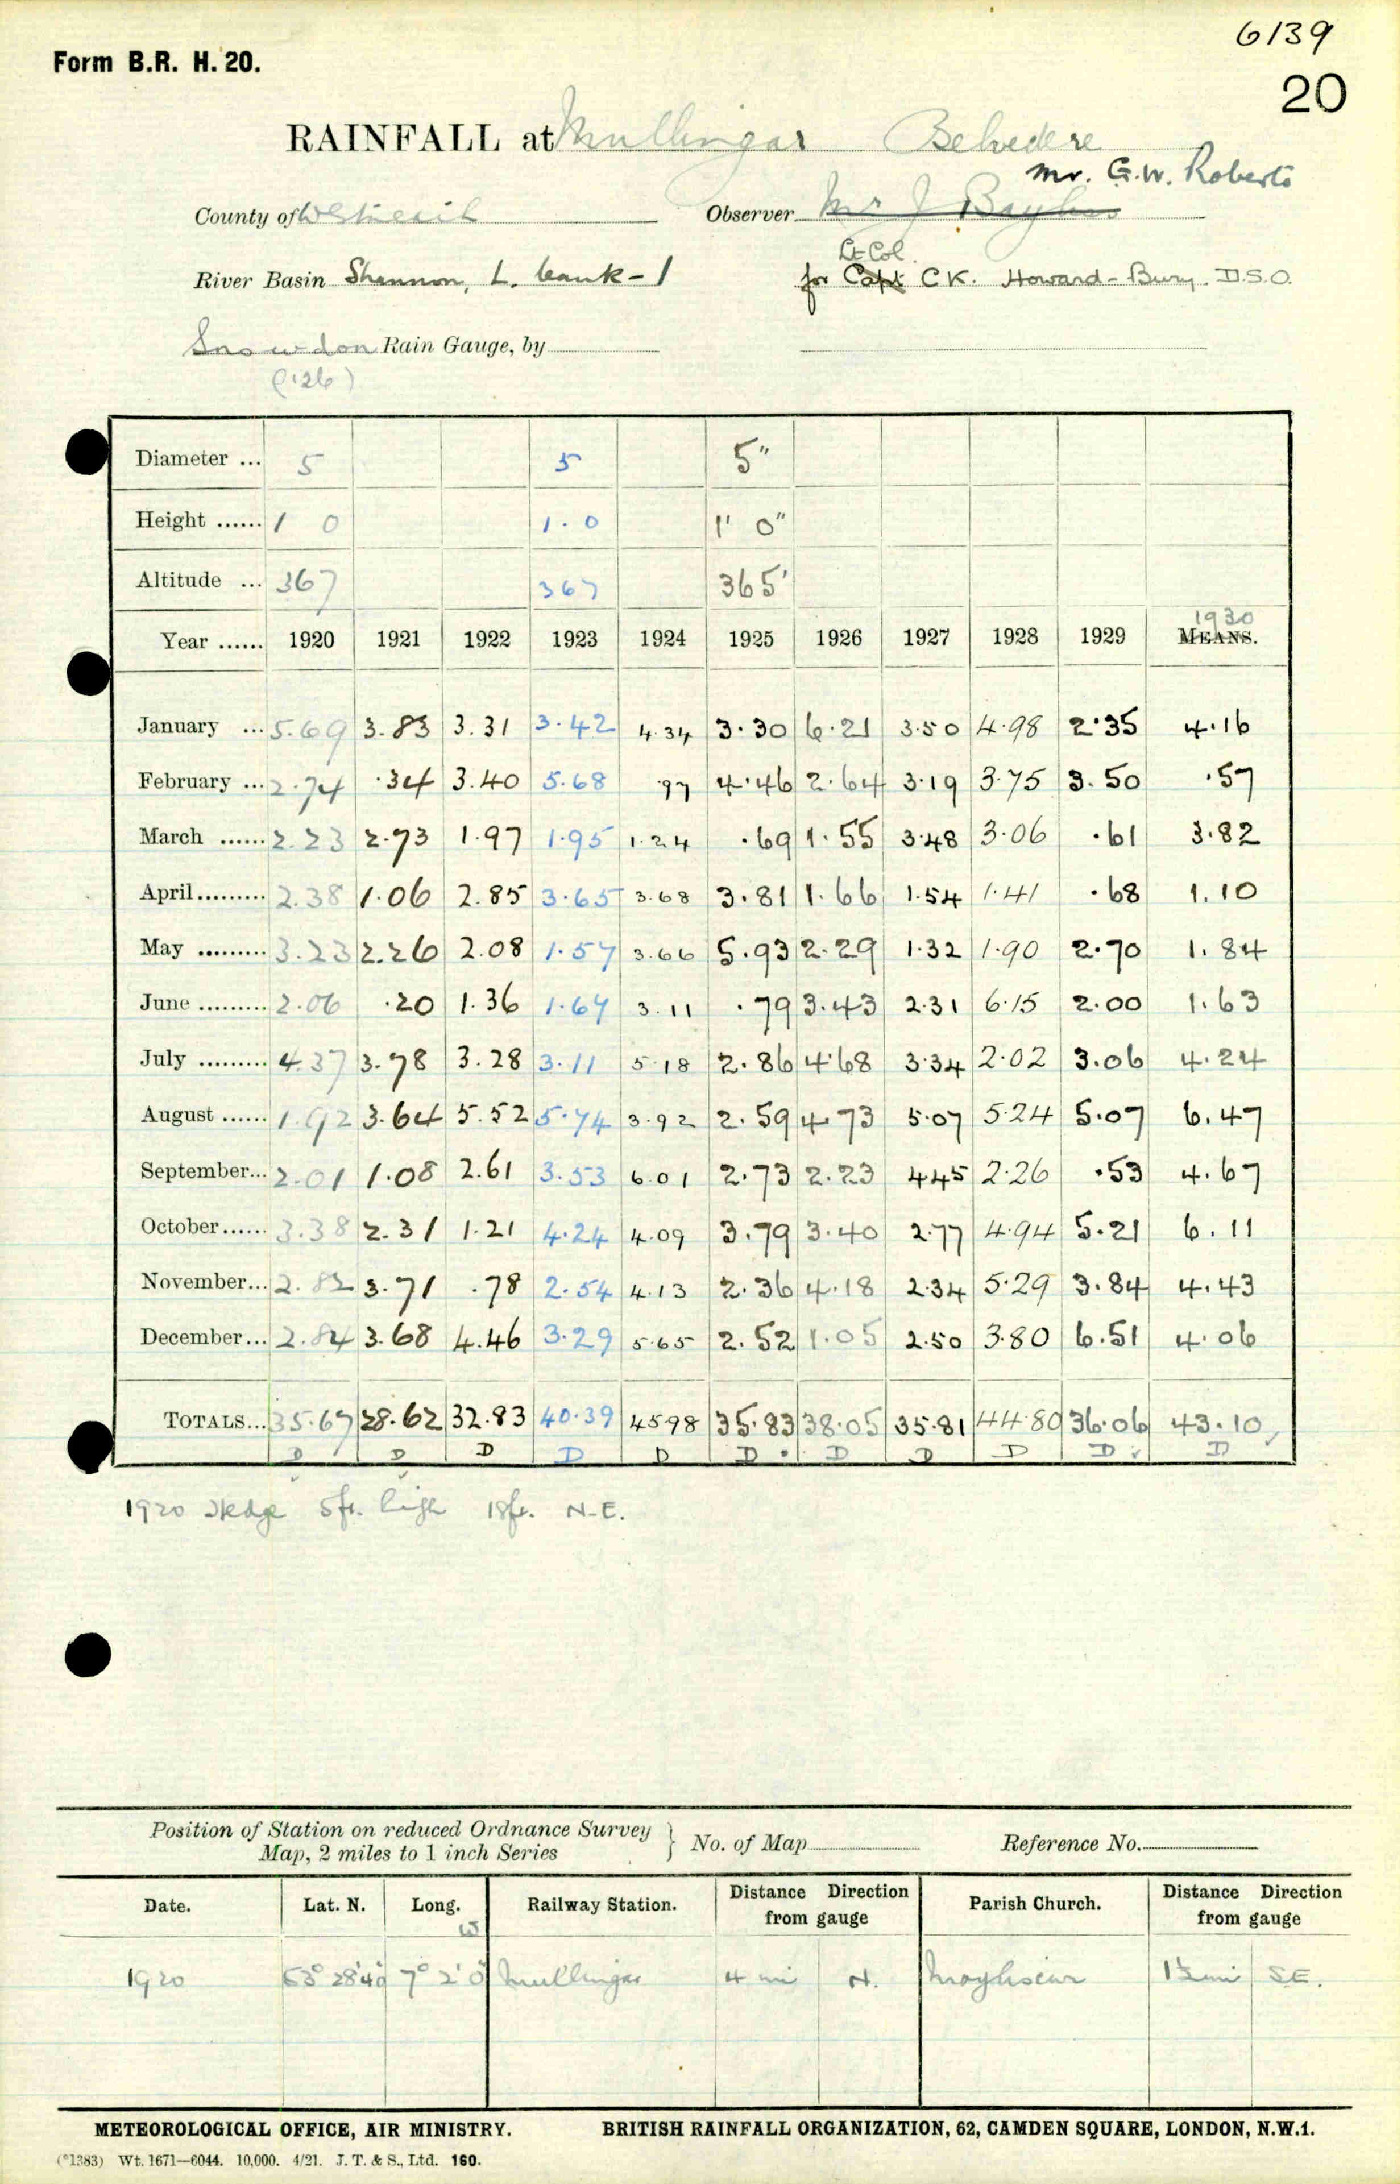 6139
Form B.R. H. 20.
20
RAINFALL at Mullingar Belvedere
Mr. G.W. Roberts
County of Westmeath Observer Mr J Bayliss
Lt Col.
River Basin Shannon, L. bank - 1 for Capt C K. Howard-Bury. D.S.O.
Snowdon Rain Gauge, by
('26)
Diameter ... 5 5 5"
Height ...... 1 0 1. 0 1' 0"
Altitude ... 367 367 365'
1930
Year ...... 1920 1921 1922 1923 1924 1925 1926 1927 1928 1929 MEANS.
January ... 5.69 3.83 3.31 3.42 4.34 3.30 6.21 3.50 4.98 2.35 4.16
February ... 2.74 .34 3.40 5.68 .97 4.46 2.64 3.19 3.75 3.50 .57
March ...... 2.23 2.73 1.97 1.95 1.24 .69 1.55 3.48 3.06 .61 3.82
April ......... 2.38 1.06 2.85 3.65 3.68 3.81 1.66 1.54 1.41 .68 1.10
May ......... 3.23 2.26 2.08 1.57 3.66 5.93 2.29 1.32 1.90 2.70 1.84
June ......... 2.06 .20 1.36 1.67 3.11 .79 3.43 2.31 6.15 2.00 1.63
July ......... 4.37 3.78 3.28 3.11 5.18 2.86 4.68 3.34 2.02 3.06 4.24
August ...... 1.92 3.64 5.52 5.74 3.92 2.59 4.73 5.07 5.24 5.07 6.47
September... 2.01 1.08 2.61 3.53 6.01 2.73 2.23 4.45 2.26 .53 4.67
October...... 3.38 2.31 1.21 4.24 4.09 3.79 3.40 2.77 4.94 5.21 6.11
November... 2.82 3.71 .78 2.54 4.13 2.36 4.18 2.34 5.29 3.84 4.43
December... 2.84 3.68 4.46 3.29 5.65 2.52 1.05 2.50 3.80 6.51 4.06
TOTALS... 35.67 28.62 32.83 40.39 45.98 35.83 38.05 35.81 44.80 36.06 43.10
D D D D D D D D D D D
1920 Hedge 5ft. high 18ft. N-E.
Position of Station on reduced Ordnance Survey Map, 2 miles to 1 inch Series } No. of Map Reference No.
Date. Lat. N. Long. W Railway Station. Distance Direction from gauge Parish Church. Distance Direction from gauge
1920 53° 28' 40" 7° 2' 0" Mullingar 4 mi N. Moyliscar 1½ mi SE.
METEOROLOGICAL OFFICE, AIR MINISTRY. BRITISH RAINFALL ORGANIZATION, 62, CAMDEN SQUARE, LONDON, N.W.1.
(*1383) Wt. 1671—6044. 10,000. 4/21. J. T. & S., Ltd. 160.